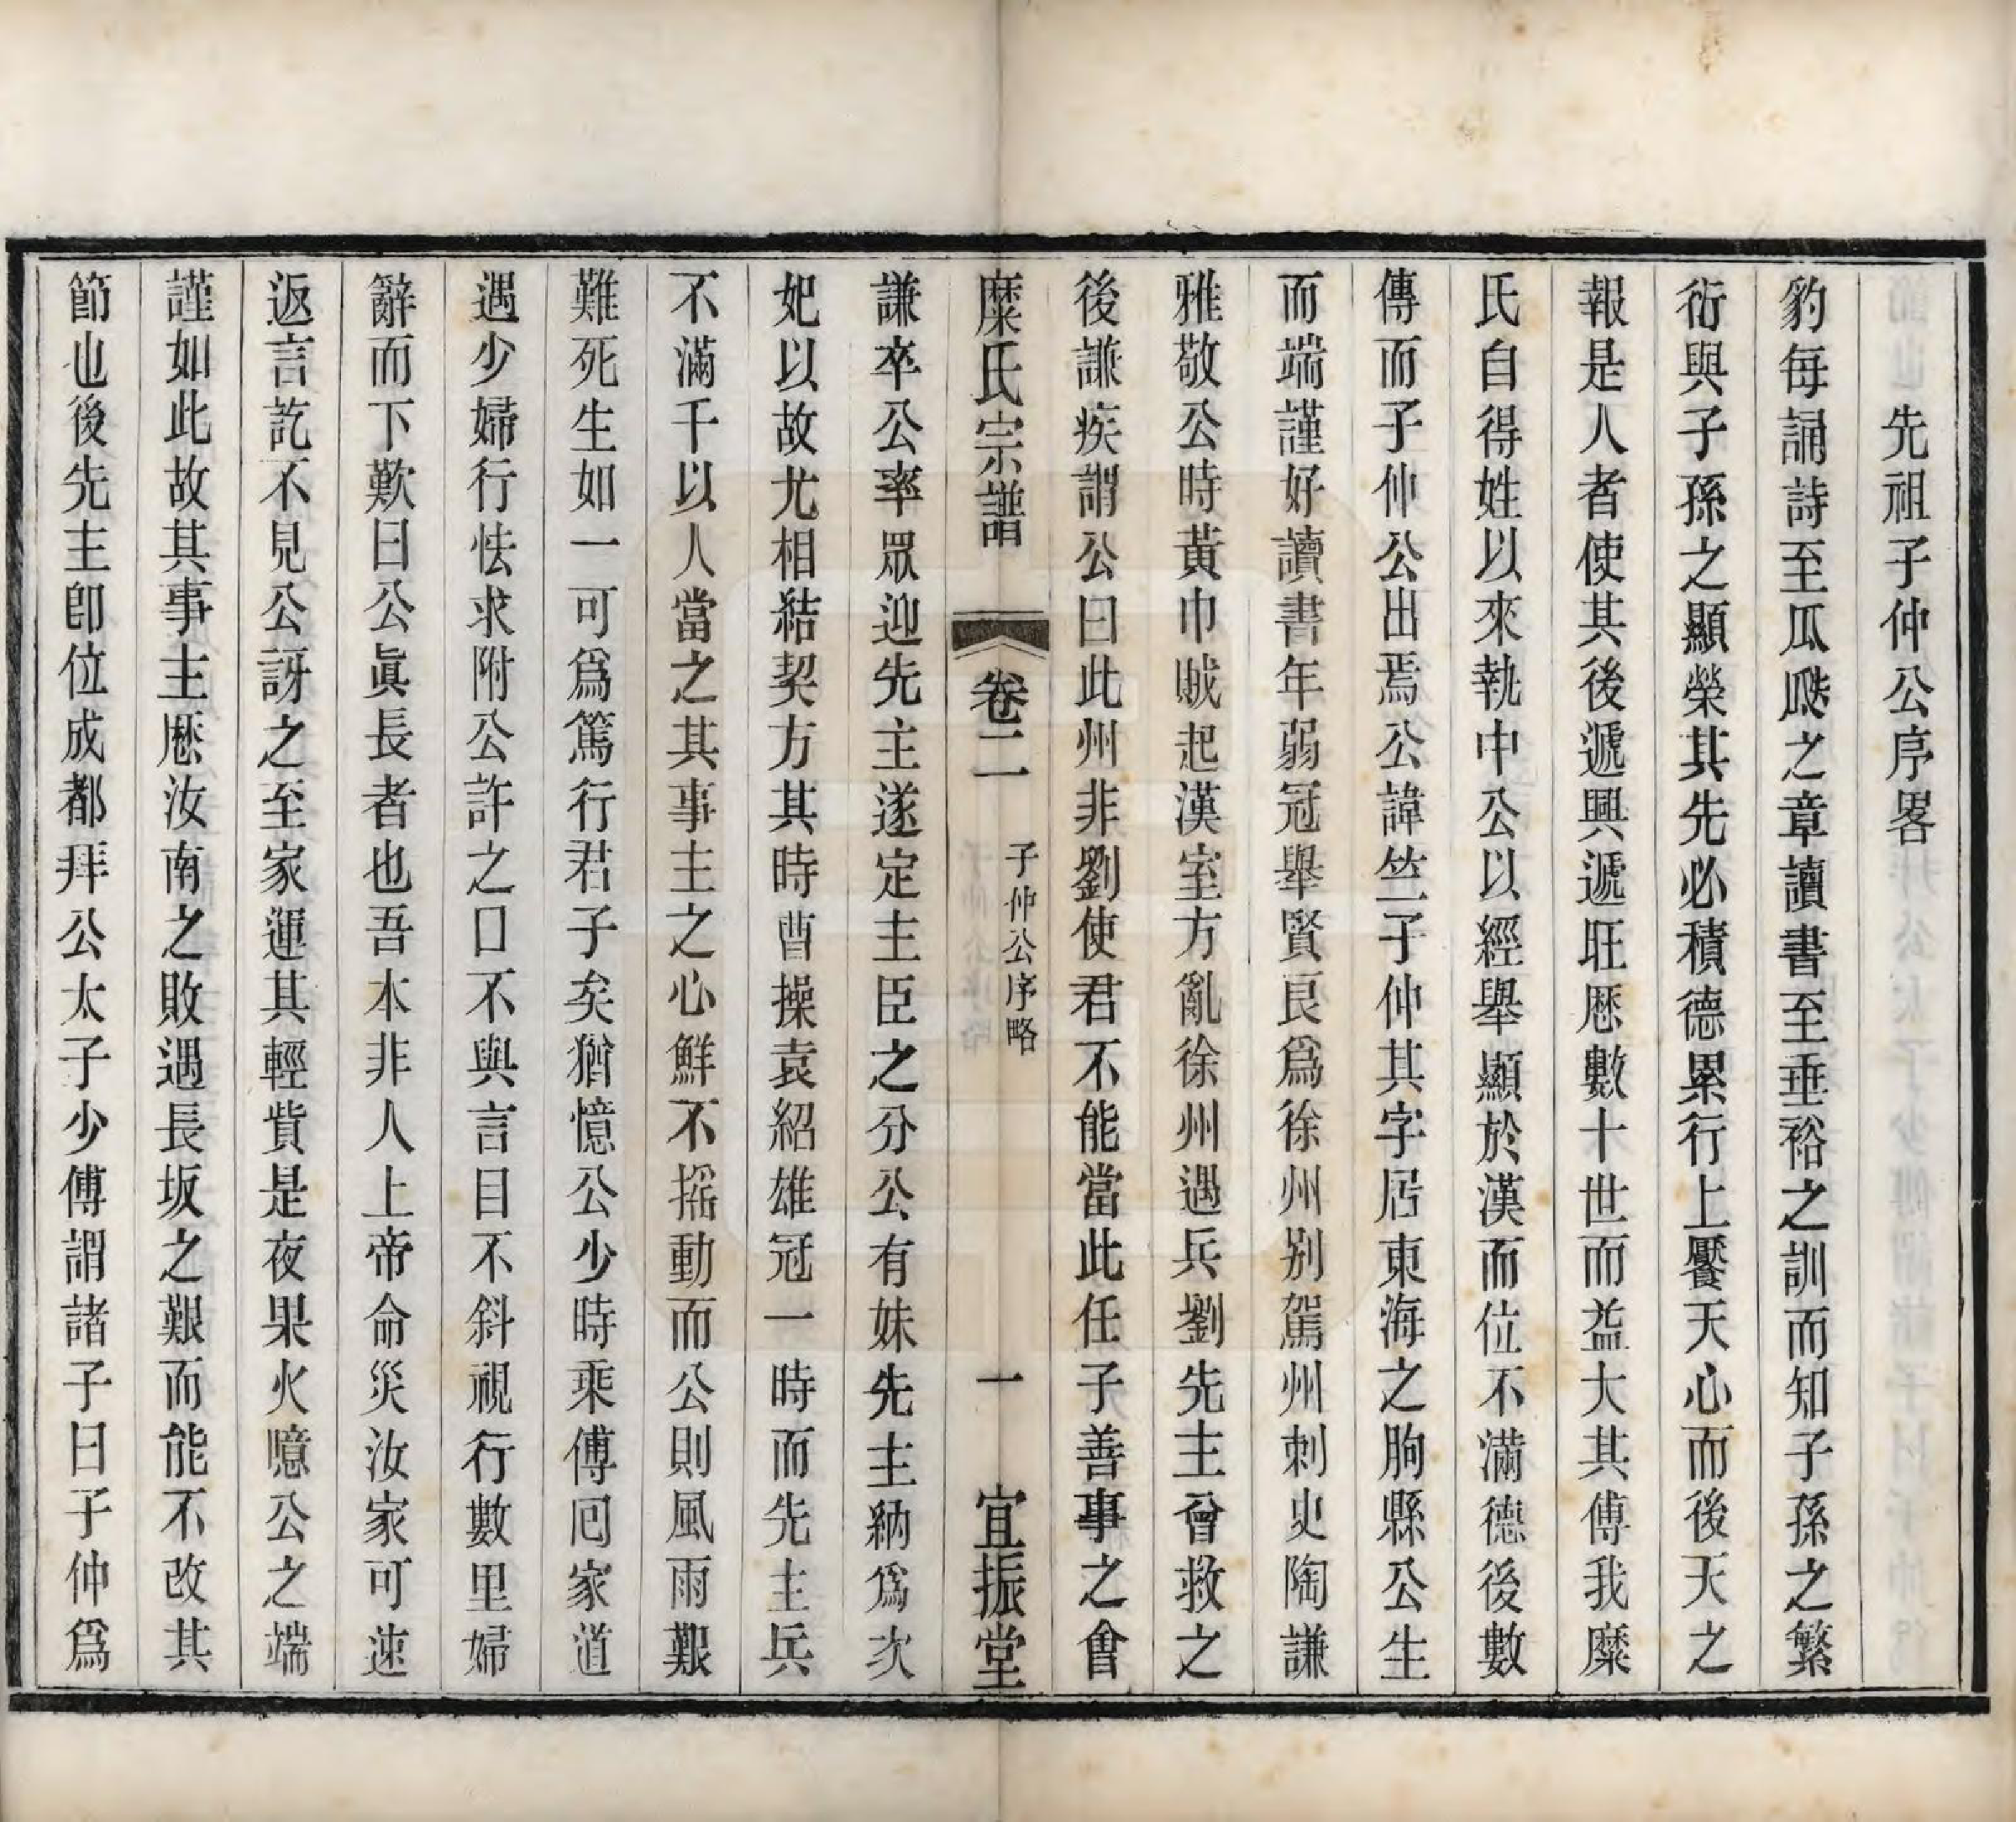 先祖子仲公序畧
豹每誦詩至瓜瓞之章讀書至垂裕之訓而知子孫之繁
衍與子孫之顯榮其先必積德累行上饜天心而後天之
報是人者使其後遞興遞旺厯數十世而益大其傳我糜
氏自得姓以來執中公以經舉顯於漢而位不滿德後數
傳而子仲公出焉公諱竺子仲其字居東海之朐縣公生
而端謹好讀書年弱冠舉賢良爲徐州別駕州刺史陶謙
雅敬公時黃巾賊起漢室方亂徐州遇兵劉先主曾救之
後謙疾謂公曰此州非劉使君不能當此任子善事之會
糜氏宗譜 卷二 子仲公序略 一 宜振堂
謙卒公率眾迎先主遂定主臣之分公有妹先主納爲次
妃以故尤相結契方其時曹操袁紹雄冠一時而先主兵
不滿千以人當之其事主之心鮮不搖動而公則風雨艱
難死生如一可爲篤行君子矣猶憶公少時乘傳囘家道
遇少婦行怯求附公許之口不與言目不斜視行數里婦
辭而下歎曰公眞長者也吾本非人上帝命災汝家可速
返言訖不見公訝之至家運其輕貲是夜果火噫公之端
謹如此故其事主厯汝南之敗遇長坂之艱而能不改其
節也後先主卽位成都拜公太子少傅謂諸子曰子仲爲